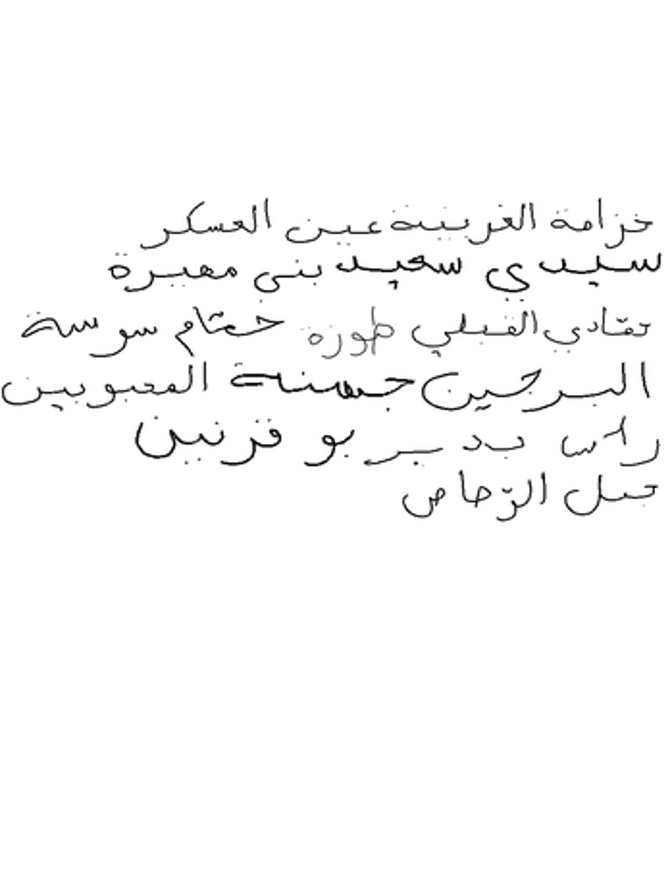 خزامة الغربية عين العسكر
سيدي سعيد بني مهيرة
القبلي طوزة سوسة
البرجين المحبوبين
راس بو قرنين
جبل الرّصاص